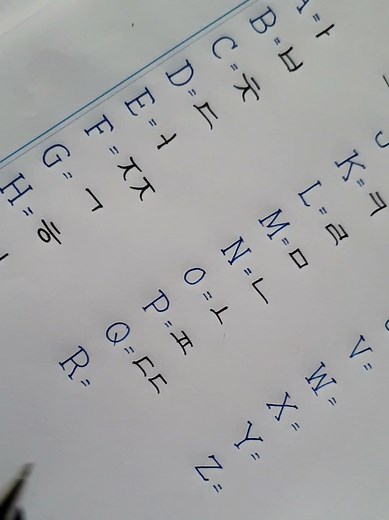 A=ㅏ
B=ㅂ
C=ㅊ
D=ㄷ
E=ㅓ
F=ㅉ
G=ㄱ
H=ㅎ
J
K=ㅋ
L=ㄹ
M=ㅁ
N=ㄴ
O=ㅗ
P=ㅍ
Q=ㄸ
R=
V=
W=
X=
Y=
Z=